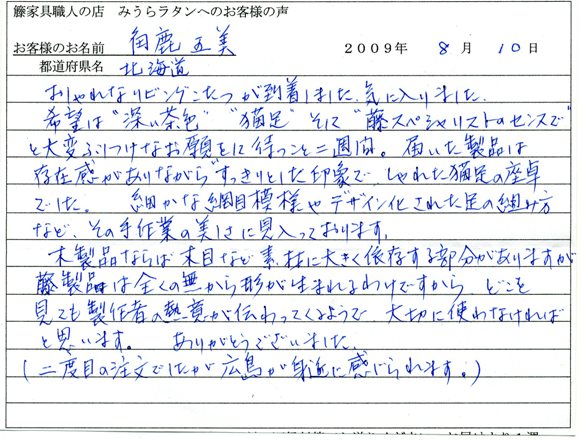 籐家具職人の店　みうらラタンへのお客様の声
お客様のお名前　角鹿 五美　2009年　8月　10日
都道府県名　北海道
おしゃれなリビングこたつが到着しました。気に入りました。
希望は"深い茶色""猫足"そして"藤スペシャリストのセンスで"
と大変ぶしつけなお願をして待つこと二週間。届いた製品は
存在感がありながら"すっきりとした印象で"しゃれた猫足の座卓
でした。　細かな網目模様やデザイン化された足の組み方
など、その手作業の美しさに見入っております。
木製品ならば木目など素材に大きく依存する部分がありますが
藤製品は全くの無から形が生まれるわけですから、どこを
見ても製作者の熱意が伝わってくるようで　大切に使わなければ
と思います。　ありがとうございました。
(二度目の注文でしたが広島が身近に感じられます。)